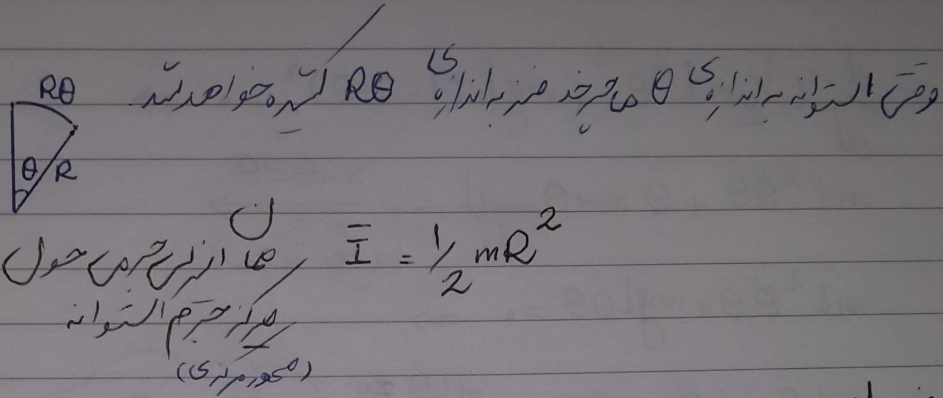 وقتی استوانه به اندازه‌ی θ می‌چرخد فنر به اندازه‌ی Rθ کشیده خواهد شد
Rθ
θ R
ممان اینرسی جرمی حول Ī = 1/2 mR²
مرکز جرم استوانه
(محور مرکزی)